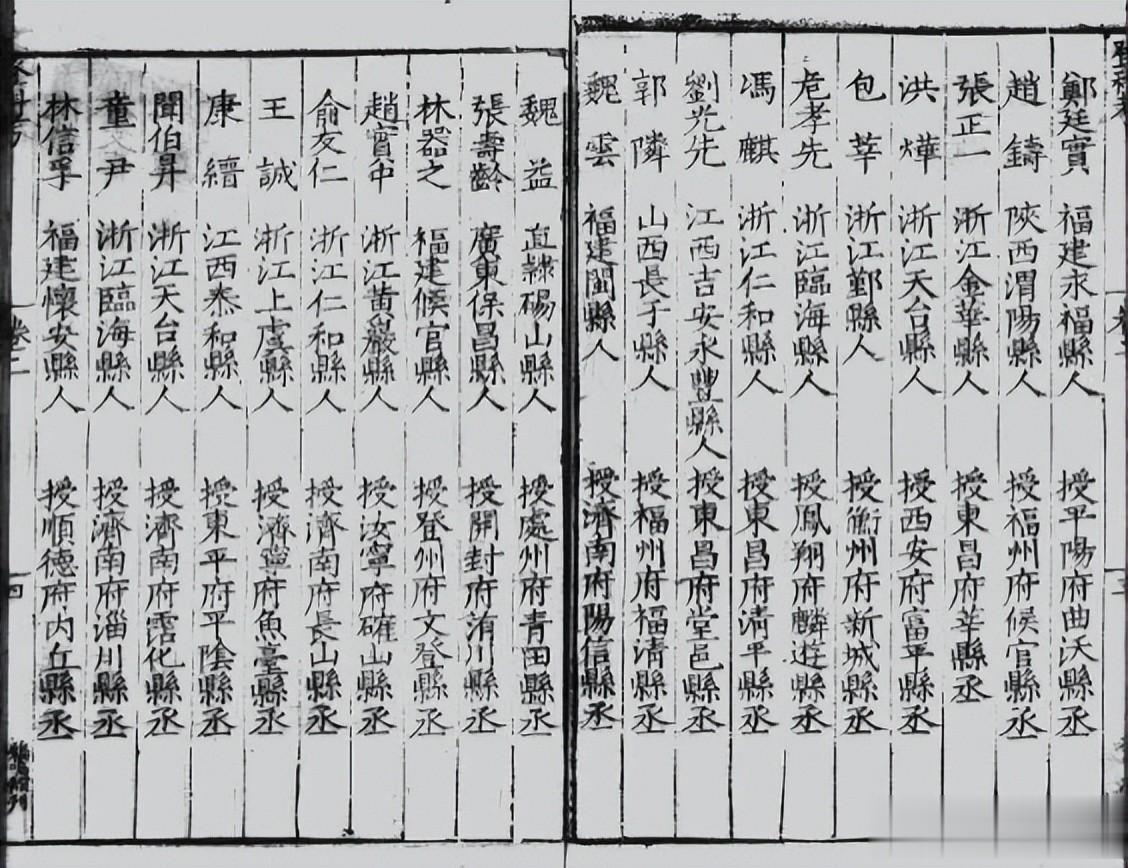 鄭廷實 福建永福縣人 授平陽府曲沃縣丞
趙鑄 陝西渭陽縣人 授福州府候官縣丞
張正一 浙江金華縣人 授東昌府莘縣丞
洪燁 浙江天台縣人 授西安府富平縣丞
包莘 浙江鄞縣人 授衢州府新城縣丞
危孝先 浙江臨海縣人 授鳳翔府麟遊縣丞
馮麒 浙江仁和縣人 授東昌府淸平縣丞
劉光先 江西吉安永豐縣人 授東昌府堂邑縣丞
郭隣 山西長子縣人 授福州府福淸縣丞
魏雲 福建閩縣人 授濟南府陽信縣丞
魏益 直隷碭山縣人 授處州府青田縣丞
張壽齡 廣東保昌縣人 授開封府洧川縣丞
林器之 福建候官縣人 授登州府文登縣丞
趙賓中 浙江黃巖縣人 授汝寧府確山縣丞
俞友仁 浙江仁和縣人 授濟南府長山縣丞
王誠 浙江上虞縣人 授濟寧府魚臺縣丞
康繒 江西泰和縣人 授東平府平陰縣丞
聞伯昇 浙江天台縣人 授濟南府霑化縣丞
童尹 浙江臨海縣人 授濟南府淄川縣丞
林信孚 福建懷安縣人 授順德府内丘縣丞
卷二
四